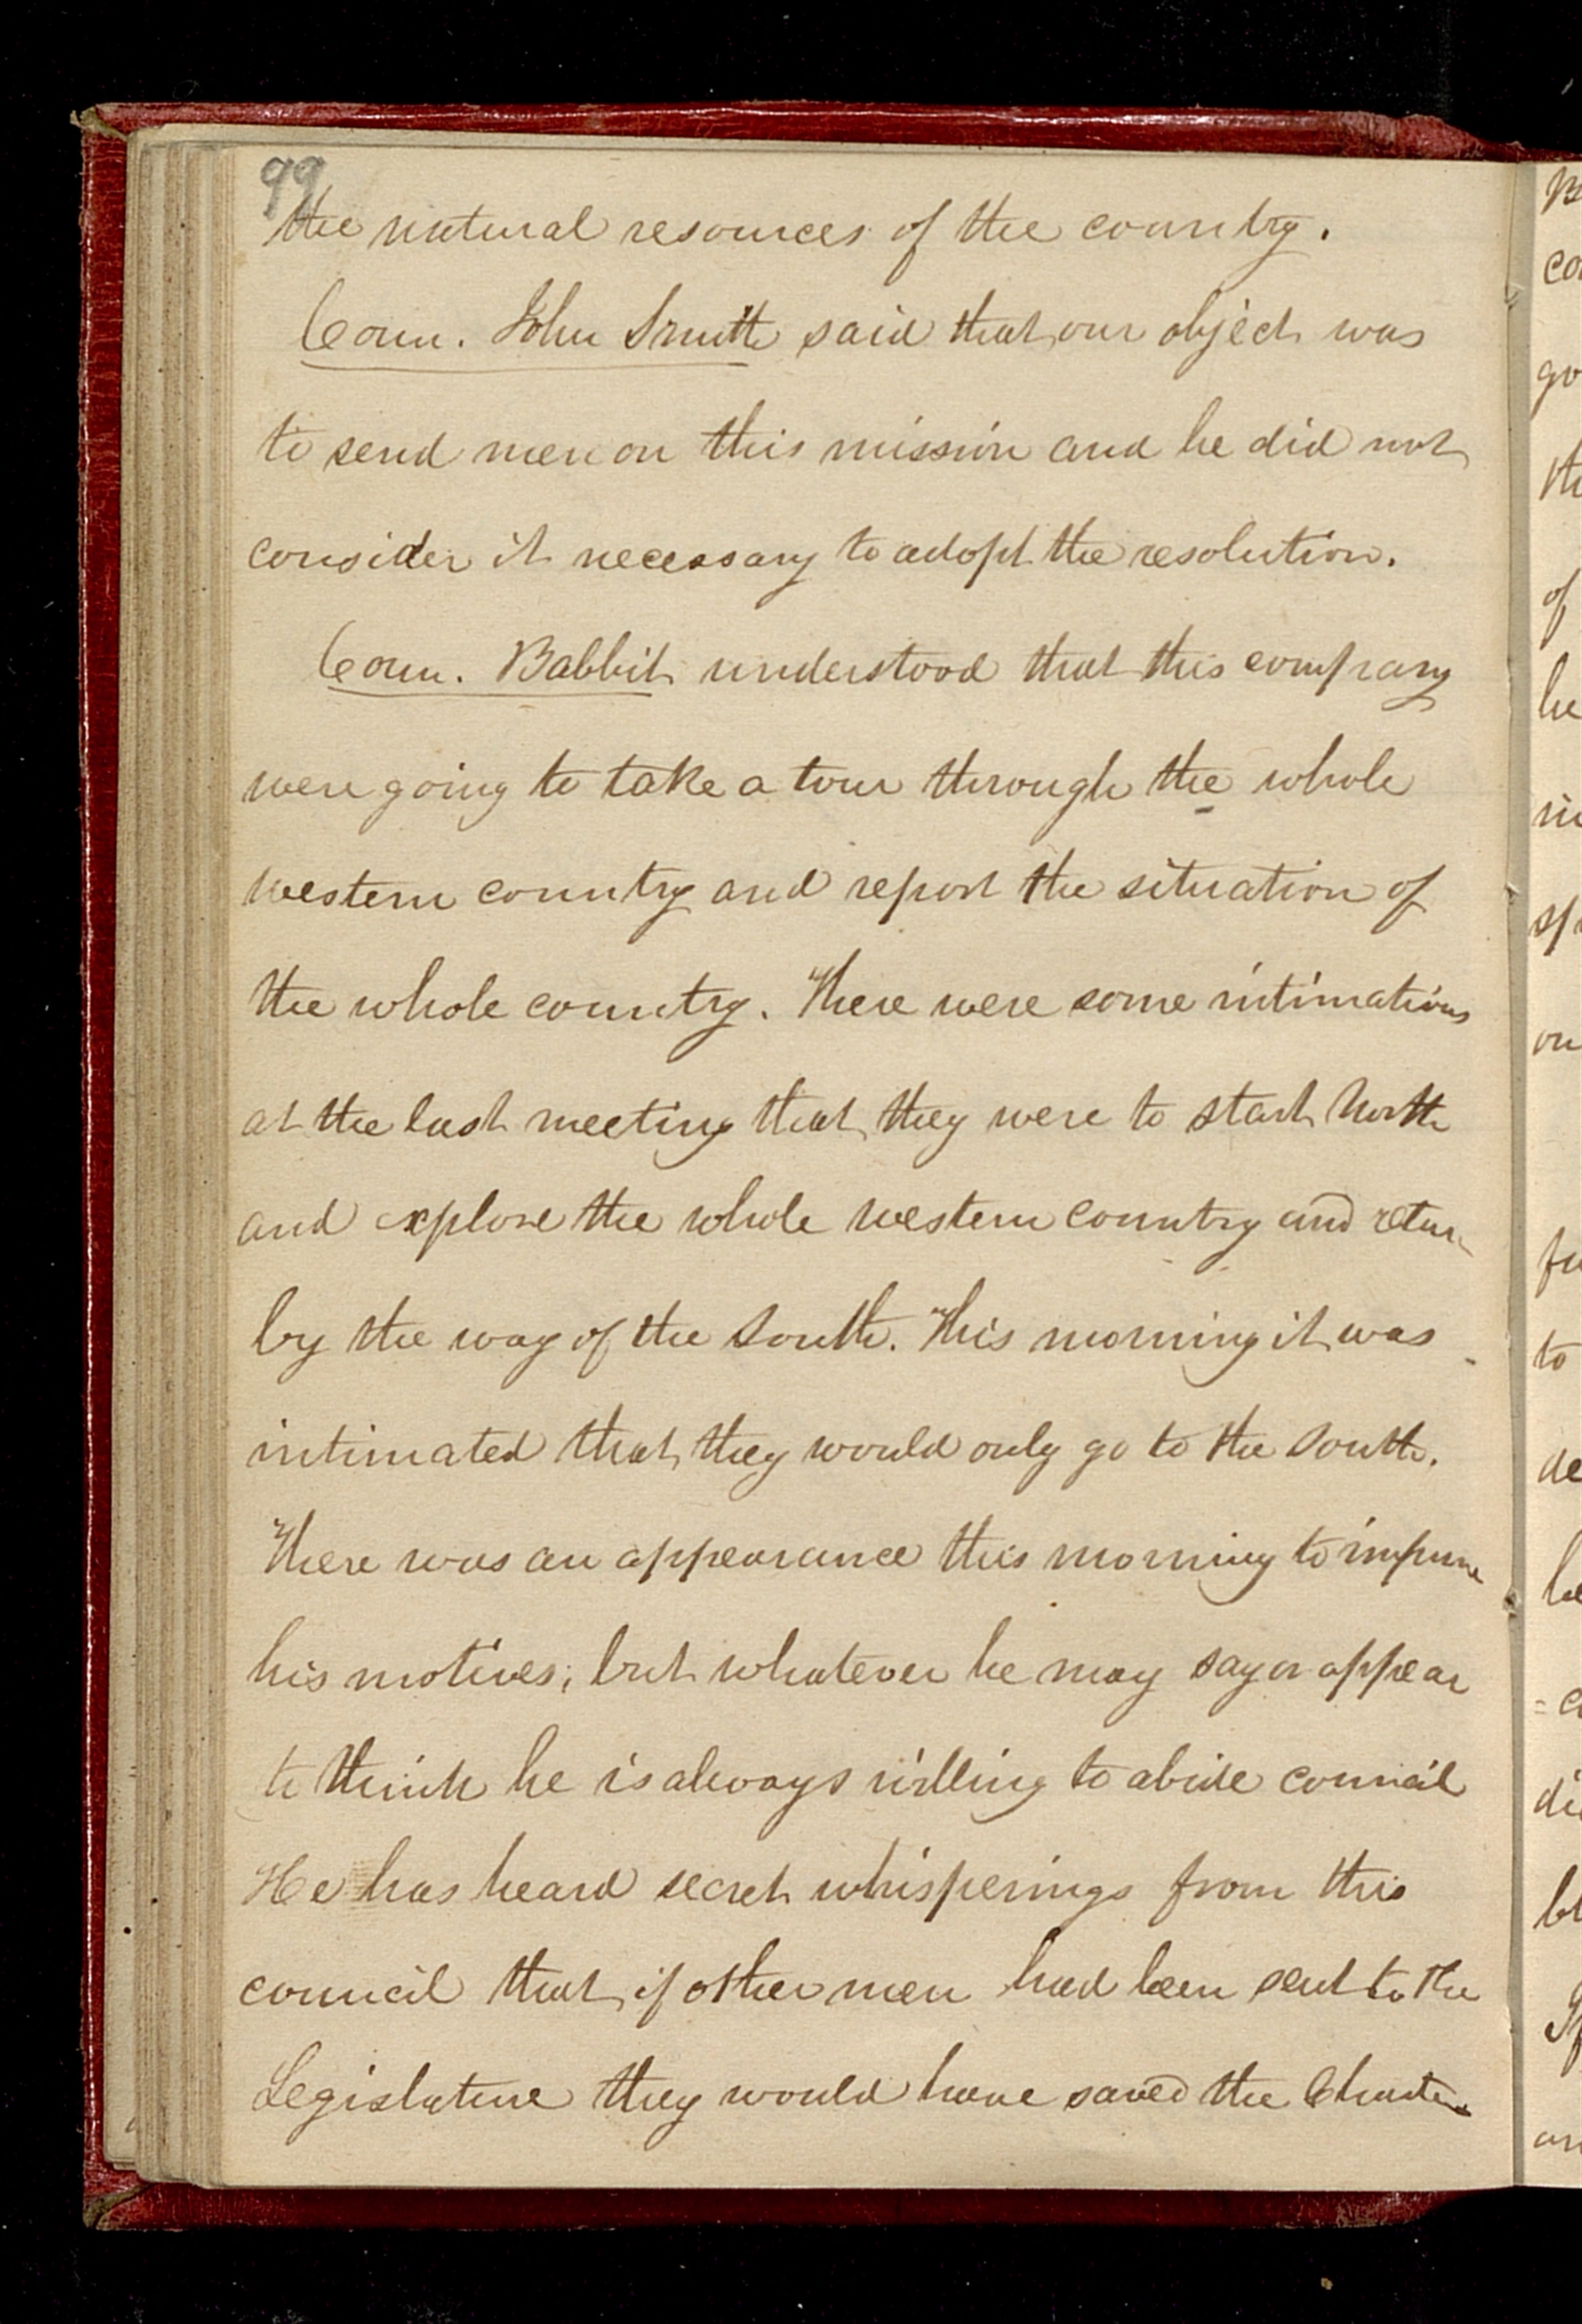 99
the natural resources of the country.
Coun. John Smith said that our object was
to send men on this mission and he did not
consider it necessary to adopt the resolution.
Coun. Babbit understood that this company
were going to take a tour through the whole
western country and report the situation of
the whole country. There were some intimations
at the last meeting that they were to start North
and explore the whole western country and return
by the way of the South. This morning it was
intimated that they would only go to the South.
There was an appearance this morning to impune
his motives; but whatever he may say or appear
to think he is always willing to abide council
He has heard secret whisperings from this
council that if other men had been sent to the
Legislature they would have saved the Charter
B
co
go
th
of
he
in
sp
on
fu
to
de
be
= c
di
bl
If
an